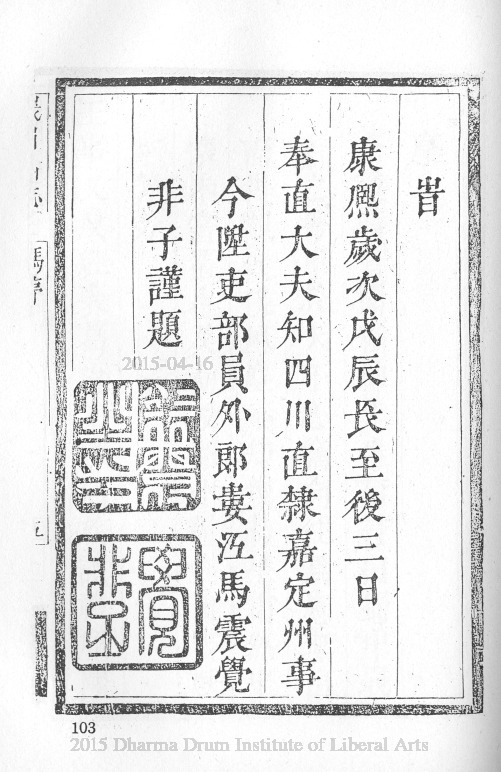 旹
康熙歲次戊辰長至後三日
奉直大夫知四川直隷嘉定州事
今陞吏部員外郎婁江馬震覺
非子謹題
覺非子
2015-04-16
103
2015 Dharma Drum Institute of Liberal Arts